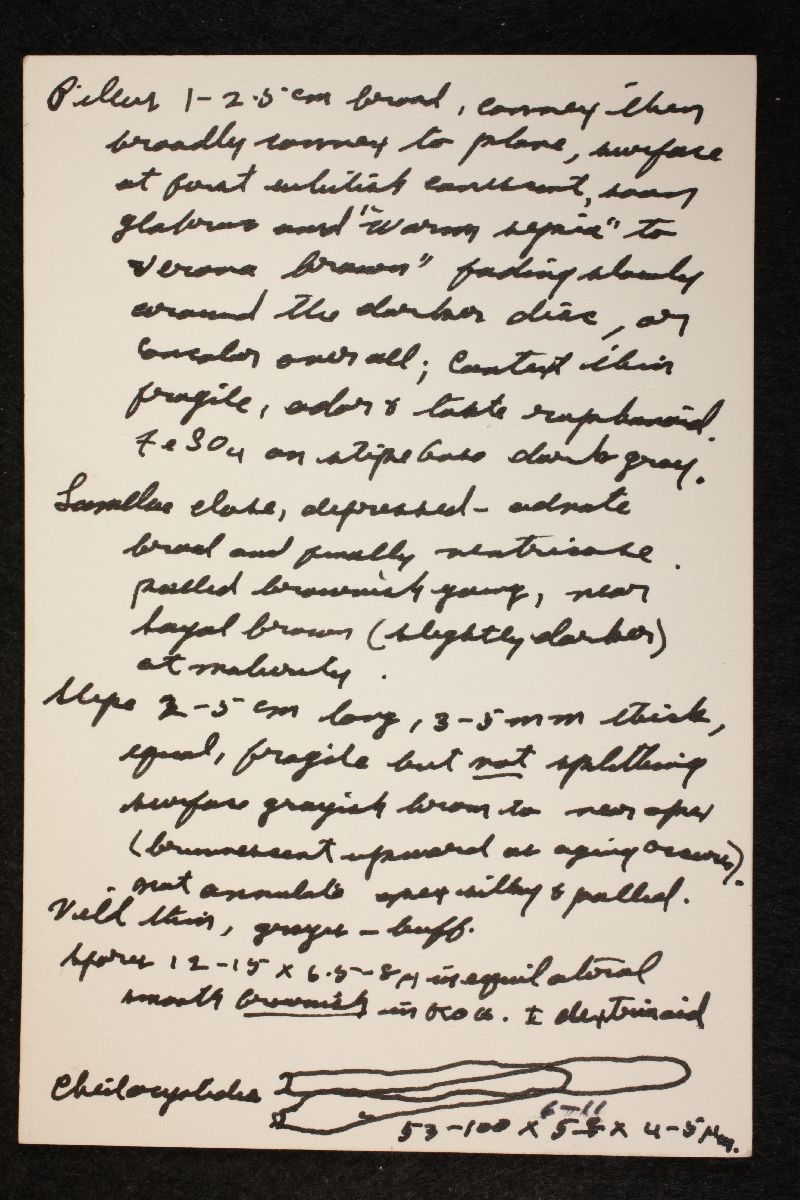 Pileus 1-2.5 cm broad, convex then
broadly convex to plane, surface
at first whitish canescent, soon
glabrous and "warm sepia" to
"verona brown" fading slowly
around the darker disc, or
concolor over all; Context thin
fragile, odor & taste raphanoid.
FeSO4 on stipe base dark gray.
Lamellae close, depressed-adnate
broad and finally ventricose.
pallid brownish young, near
sayal brown (slightly darker)
at maturity.
Stipe 2-5 cm long, 3-5 mm thick,
equal, fragile but not splitting
surface grayish brown to near apex
(brunnescent upward as aging occurs).
not annulate apex silky & pallid.
Veil thin, grayish-buff.
Spores 12-15 x 6.5-8µ inequilateral
smooth brownish in KOH. ± dextrinoid
Cheilocystidia
6-11
53-100 x 5-8 x 4-5 µm.